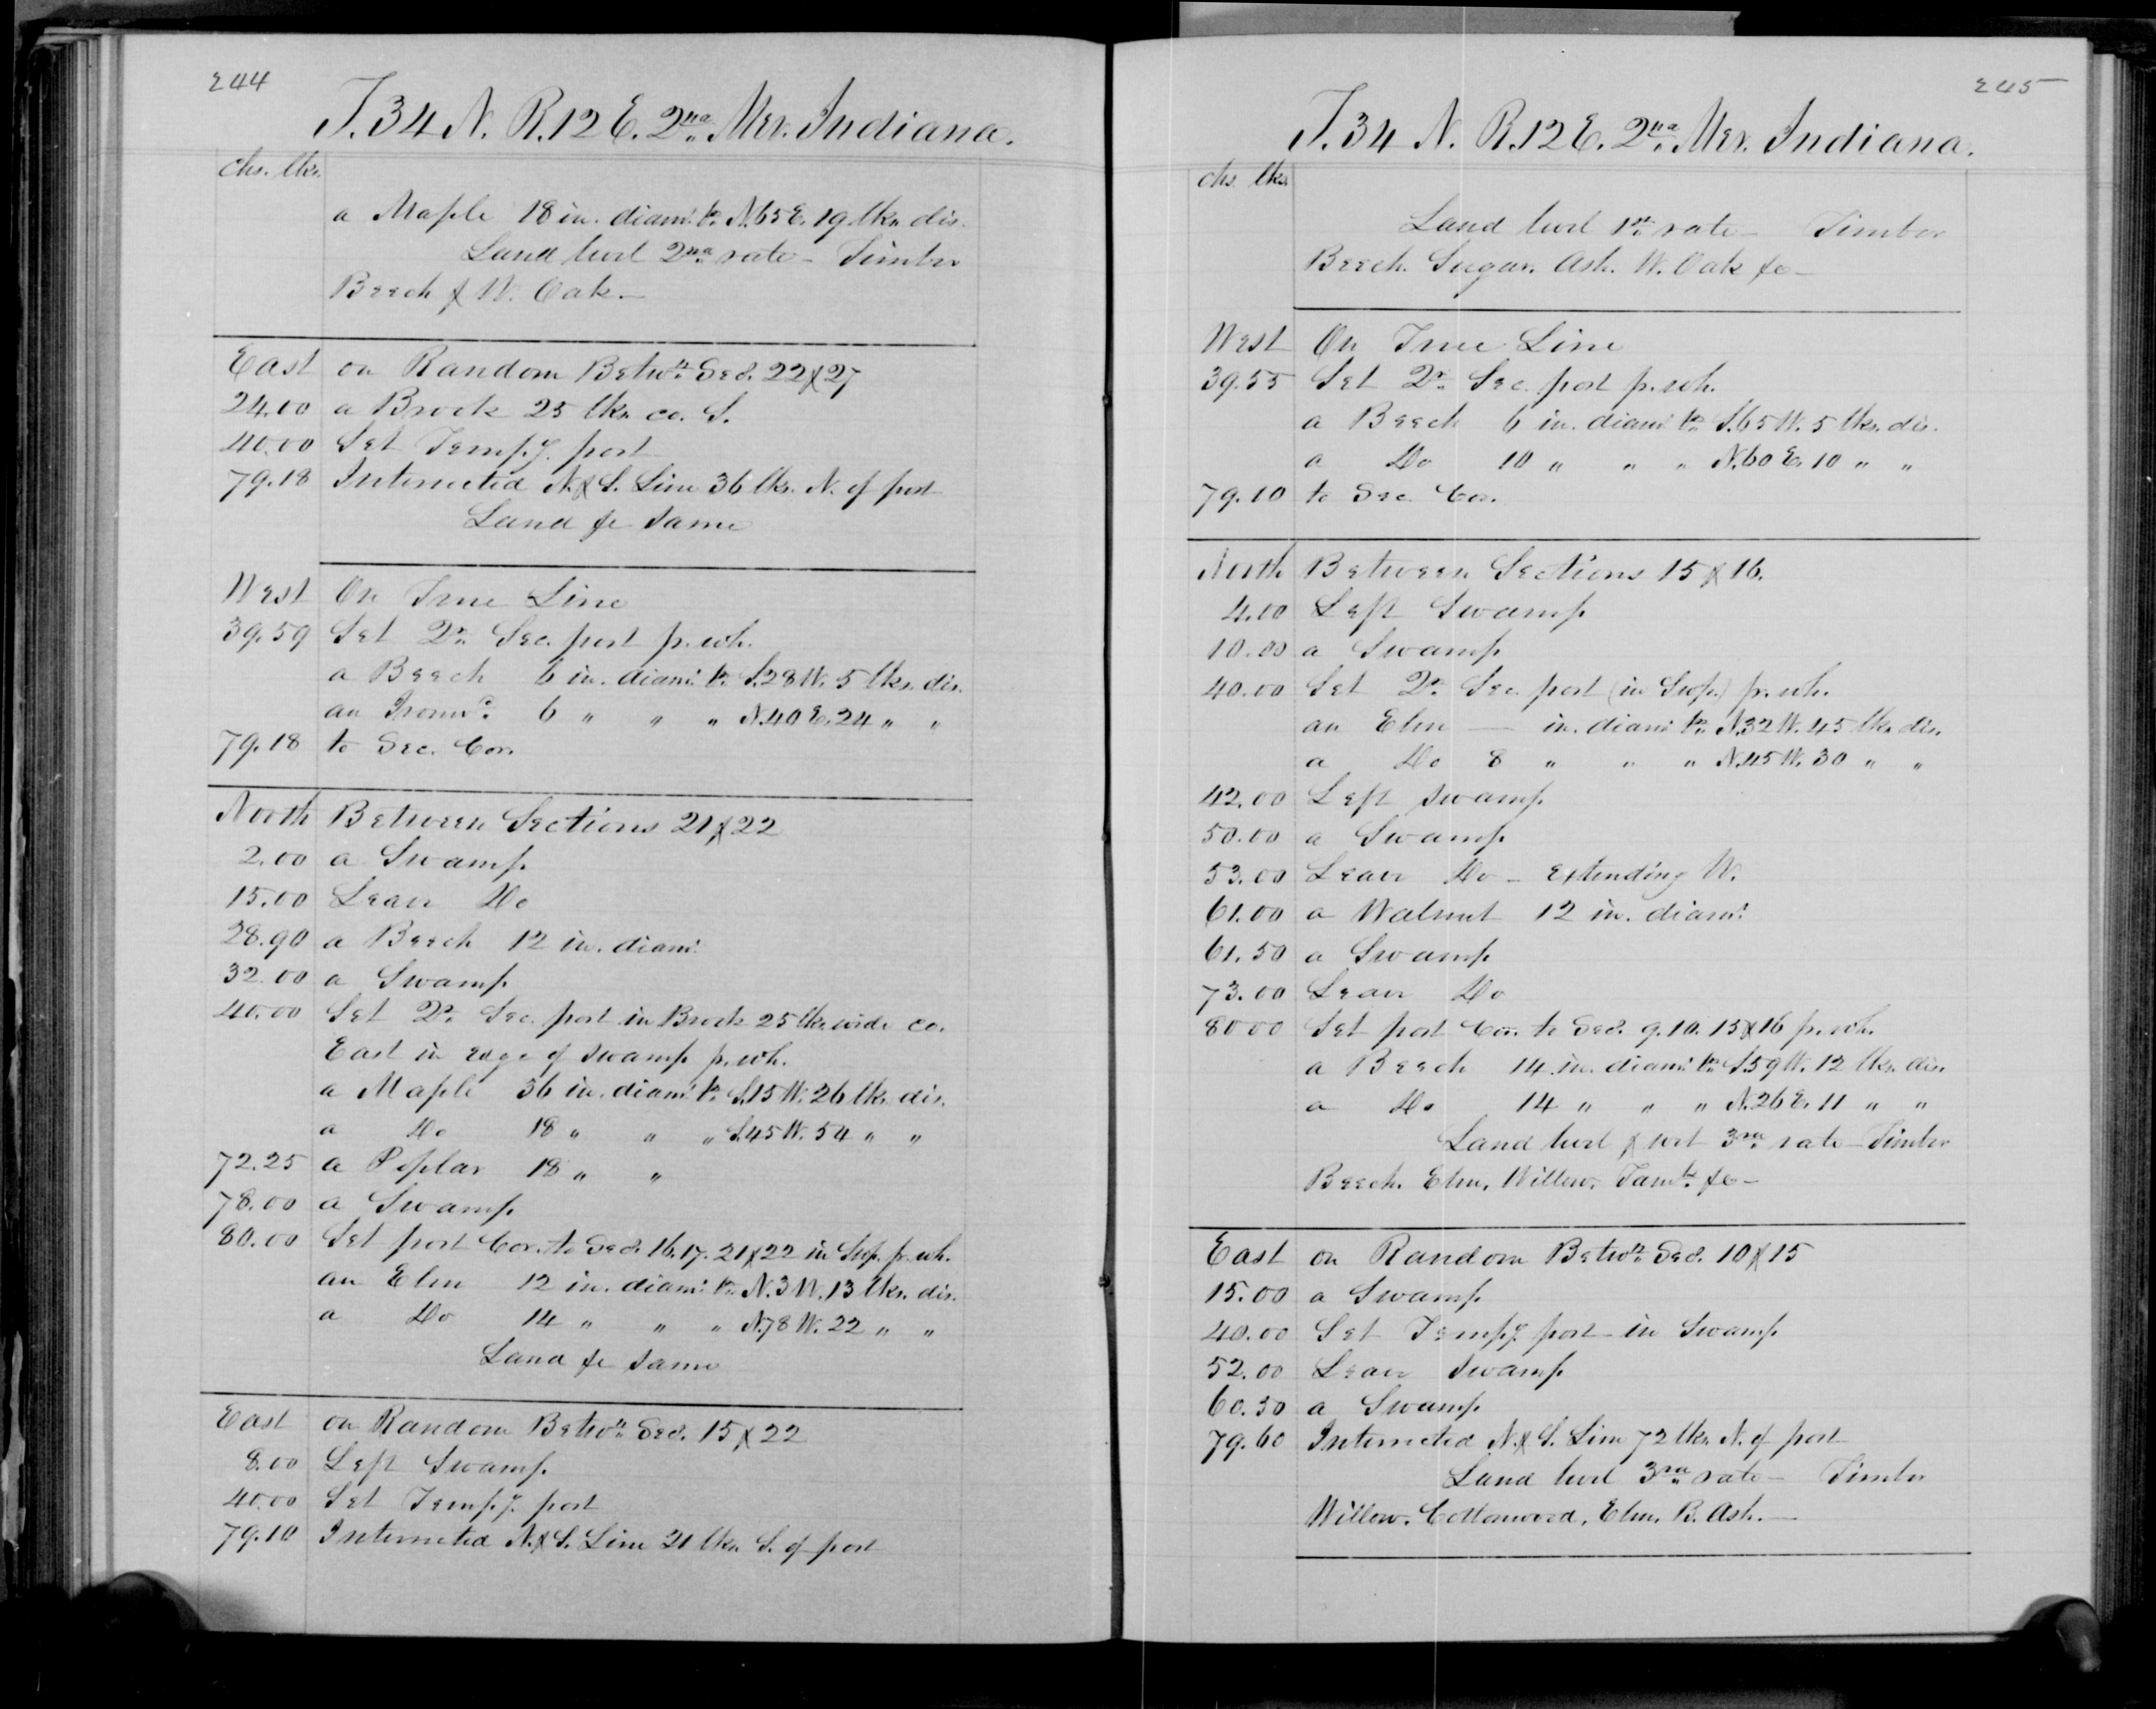 244
T. 34 N. R. 12 E. 2nd Mer. Indiana.
chs. lks.
a Maple 18 in. diamr. br. N. 65 E. 19 lks. dis.
Land level 2nd rate - Timber
Beech & W. Oak. —
East on Random Betwn. Secs. 22 & 27
24.00 a Brook 25 lks. co. S.
40.00 Set Tempy. post
79.18 Intersected N. & S. Line 36 lks. N. of post
Land &c same
West On True Line
39.59 Set Qr. Sec. post fr. wh.
a Beech 6 in. diamr. br. S. 28 W. 5 lks. dis.
an Ironwd. 6 " " " N. 40 E. 24 " "
79.18 to Sec. Cor.
North Between Sections 21 & 22
2.00 a Swamp
15.00 Leave Do
28.90 a Beech 12 in. diamr.
32.00 a Swamp
40.00 Set Qr. Sec. post in Brook 25 lks. wide co.
East in edge of swamp fr. wh.
a Maple 36 in. diamr. br. S. 15 W. 26 lks. dis.
a Do 18 " " " S. 45 W. 54 " "
72.25 a Poplar 18 " "
78.00 a Swamp
80.00 Set post Cor. to Secs. 16. 17. 21 & 22 in Swp. fr. wh.
an Elm 12 in. diamr. br. N. 3 W. 13 lks. dis.
a Do 14 " " " N. 78 W. 22 " "
Land &c same
East on Random Betwn. Secs. 15 & 22
8.00 Left Swamp
40.00 Set Tempy. post
79.10 Intersected N. & S. Line 21 lks. S. of post
245
T. 34 N. R. 12 E. 2nd Mer. Indiana.
chs. lks.
Land level 1st rate — Timber
Beech. Sugar. Ash. W. Oak &c —
West On True Line
39.55 Set Qr. Sec. post fr. wh.
a Beech 6 in. diamr. br. S. 65 W. 5 lks. dis.
a Do 10 " " " N. 60 E. 10 " "
79.10 to Sec. Cor.
North Between Sections 15 & 16.
4.00 Left Swamp
10.00 a Swamp
40.00 Set Qr. Sec. post (in Swp.) fr. wh.
an Elm — in. diamr. br. N. 32 W. 45 lks. dis.
a Do 8 " " " N. 45 W. 30 " "
42.00 Left swamp
50.00 a Swamp
53.00 Leave Do — extending W.
61.00 a Walnut 12 in. diamr.
61.50 a Swamp
73.00 Leave Do
80 00 Set post Cor. to Secs. 9. 10. 15 & 16 fr. wh.
a Beech 14 in. diamr. br. S. 59 W. 12 lks. dis.
a Do 14 " " " N. 26 E. 11 " "
Land level & wet 3rd rate — Timber
Beech. Elm, Willow, Tamk. &c —
East on Random Betwn. Secs. 10 & 15
15.00 a Swamp
40.00 Set Tempy. post in Swamp
52.00 Leave swamp
60.30 a Swamp
79.60 Intersected N. & S. Line 72 lks. N. of post
Land level 3rd rate — Timber
Willow. Cottonwood, Elm, B. Ash. —